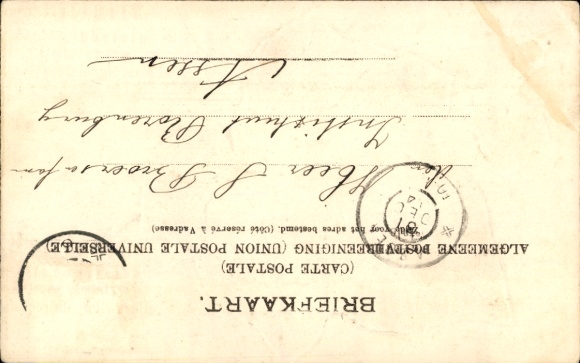 BRIEFKAART.
(CARTE POSTALE)
ALGEMEENE POSTVEREENIGING (UNION POSTALE UNIVERSELLE)
Zijde voor het adres bestemd. (Côté réservé à l'adresse)
den Heer S Broersa
Instituut Rozenburg
Assen
DEC